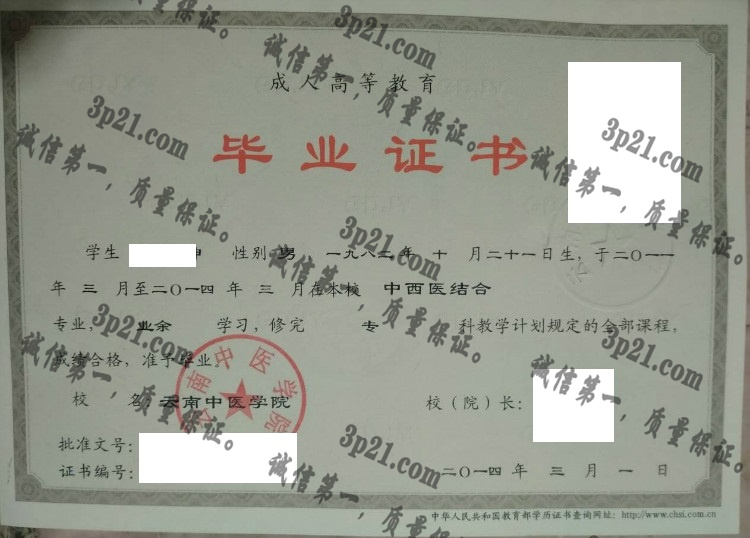 成人高等教育
毕业证书
学生 坤 性别 男 一九八二年 十 月二十一日生，于二〇一一
年 三 月至二〇一四 年 三 月在本校 中西医结合
专业， 业余 学习，修完 专 科教学计划规定的全部课程，
成绩合格，准予毕业。
校 名：云南中医学院 校（院）长：
云南中医学院
批准文号：
证书编号： 二〇一四年 三 月 一 日
中华人民共和国教育部学历证书查询网址：http://www.chsi.com.cn
3p21.com
诚信第一，质量保证。
3p21.com
诚信第一，质量保证。
3p21.com
诚信第一，质量保证。
3p21.com
诚信第一，质量保证。
3p21.com
诚信第一，质量保证。
3p21.com
诚信第一，质量保证。
3p21.com
诚信第一，质量保证。